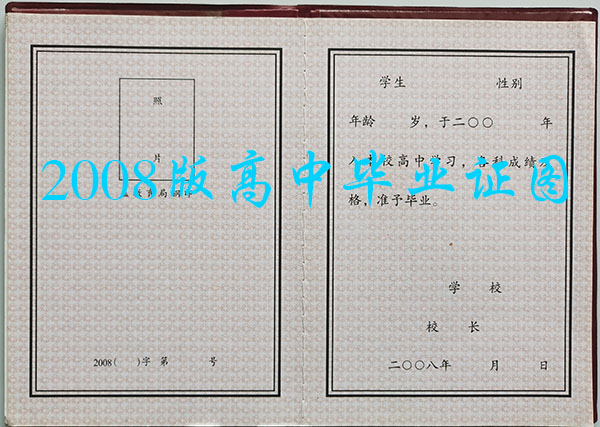 照
片
2008(  )字第  号
学生  性别
年龄  岁，于二〇〇  年
入本校高中学习，各科成绩及
格，准予毕业。
学  校
校  长
二〇〇八年  月  日
2008版高中毕业证图